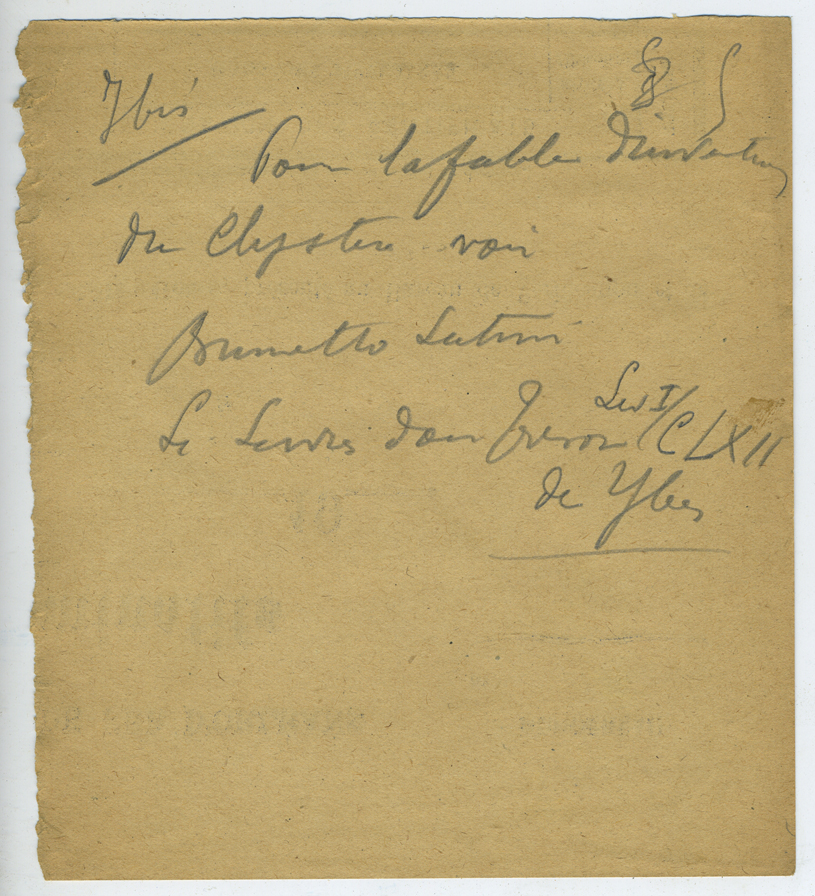 Ibis
Pour la fable d'invention
du Clystere voir
Brunetto Latini
Liv I/
Le Livres dou Tresor CLXII
de Ybes